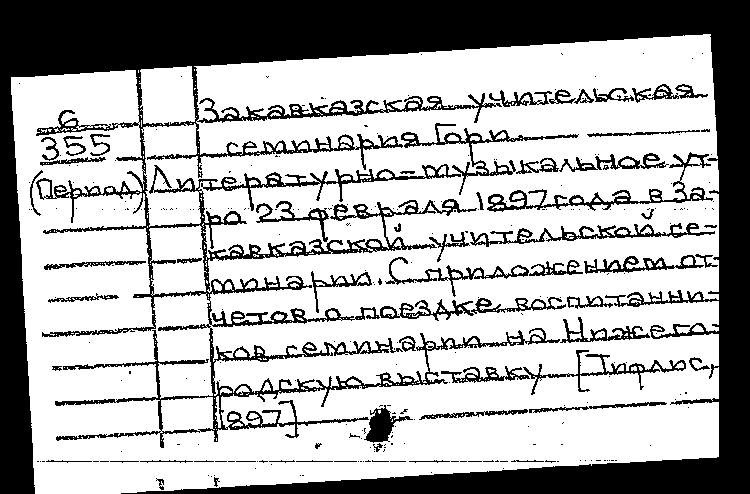 6
355
(Период)
Закавказская учительская
семинария Гори.
Литературно=музыкальное ут-
ро 23 февраля 1897 года в За-
кавказской учительской се-
минарии. С приложением от-
четов о поездке воспитанни-
ков семинарии на Нижего-
родскую выставку [Тифлис,
1897]